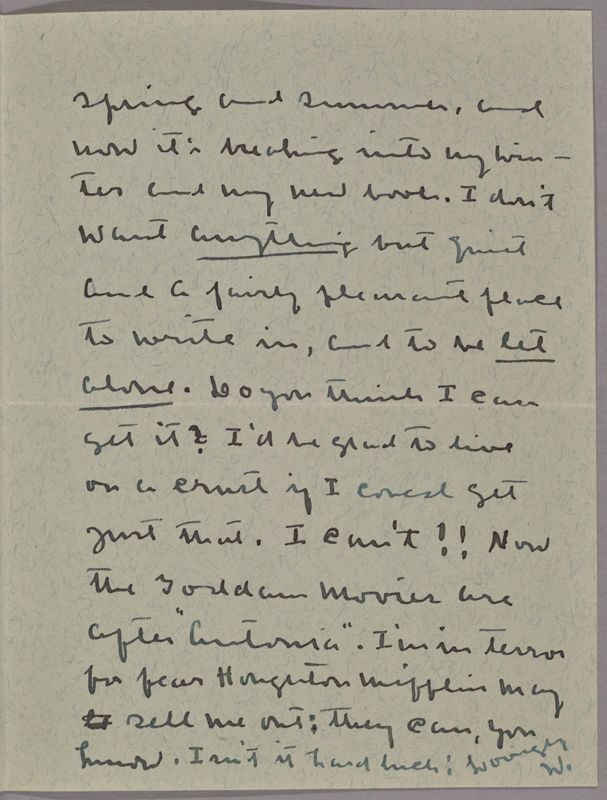 spring and summer, and
now it's breaking into my win-
ter and my new book. I don't
want anything but quiet
and a fairly pleasant place
to write in, and to be let
alone. Do you think I can
get it? I'd be glad to live
on a crust if I could get
just that. I can't!! Now
the Goddam movies are
after "Antonia". I'm in terror
for fear Houghton Mifflin may
sell me out; they can, you
know. Isn't it hard luck! Lovingly
W.